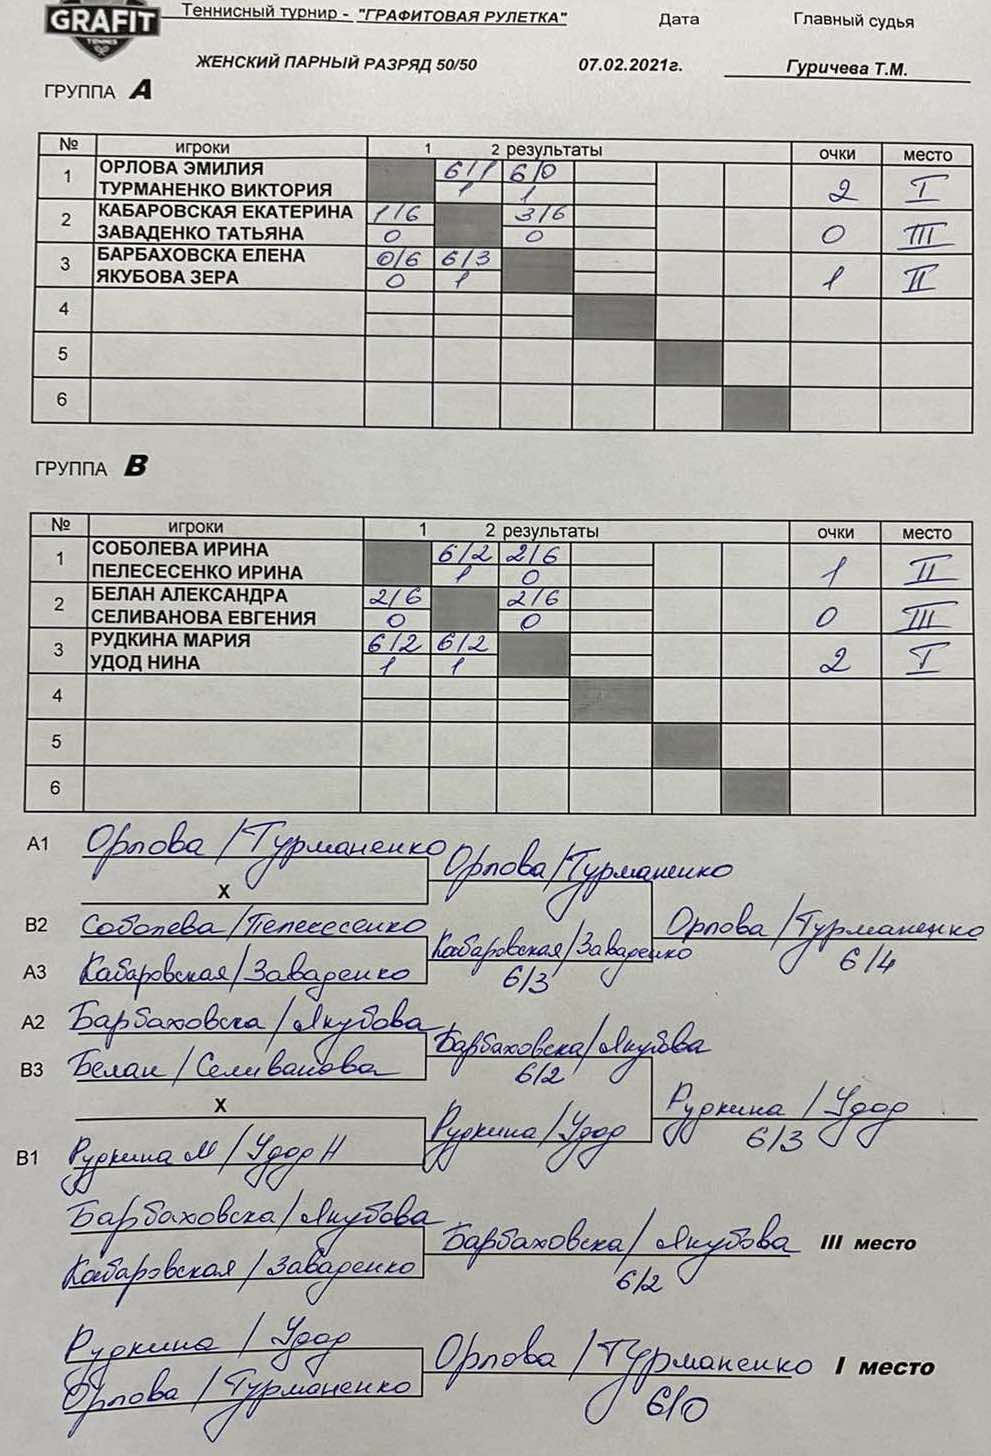 GRAFIT
TENNIS
Теннисный турнир - "ГРАФИТОВАЯ РУЛЕТКА" Дата Главный судья
ЖЕНСКИЙ ПАРНЫЙ РАЗРЯД 50/50 07.02.2021г. Гуричева Т.М.
ГРУППА А
№ игроки 1 2 результаты очки место
1 ОРЛОВА ЭМИЛИЯ 6/1 6/0
ТУРМАНЕНКО ВИКТОРИЯ 1 1 2 I
2 КАБАРОВСКАЯ ЕКАТЕРИНА 1/6 3/6
ЗАВАДЕНКО ТАТЬЯНА 0 0 0 III
3 БАРБАХОВСКА ЕЛЕНА 0/6 6/3
ЯКУБОВА ЗЕРА 0 1 1 II
4
5
6
ГРУППА В
№ игроки 1 2 результаты очки место
1 СОБОЛЕВА ИРИНА 6/2 2/6
ПЕЛЕСЕСЕНКО ИРИНА 1 0 1 II
2 БЕЛАН АЛЕКСАНДРА 2/6 2/6
СЕЛИВАНОВА ЕВГЕНИЯ 0 0 0 III
3 РУДКИНА МАРИЯ 6/2 6/2
УДОД НИНА 1 1 2 I
4
5
6
А1 Орлова/Турманенко
Орлова/Турманенко
X
В2 Соболева/Пелесесенко
Орлова/Турманенко
6/4
Кабаровская/Заваденко
6/3
А3 Кабаровская/Заваденко
А2 Барбаховска/Якубова
Барбаховска/Якубова
6/2
В3 Белан/Селиванова
X
Рудкина/Удод
6/3
Рудкина/Удод
В1 Рудкина М/Удод Н
Барбаховска/Якубова
Барбаховска/Якубова III место
6/2
Кабаровская/Заваденко
Рудкина/Удод
Орлова/Турманенко I место
6/0
Орлова/Турманенко